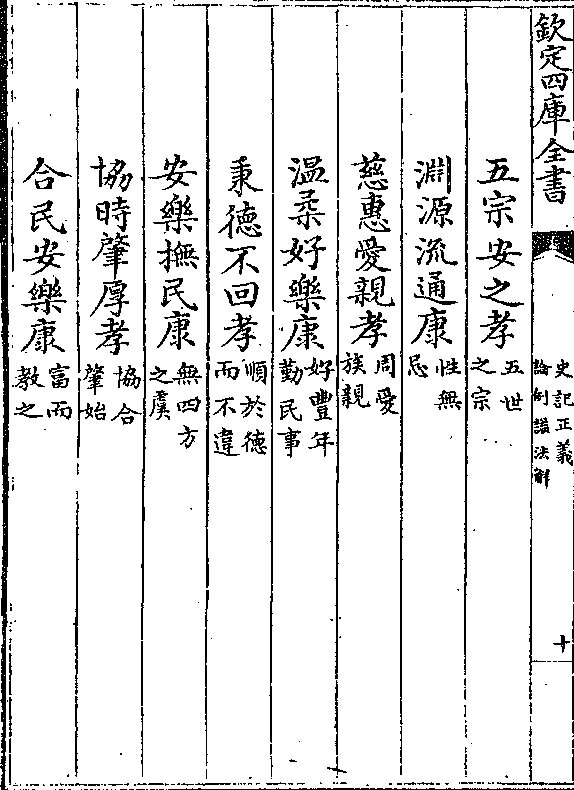 欽定四庫全書
史記正義
論例謚法解
十
五宗安之孝五世之宗
淵源流通康性無忌
慈惠愛親孝周愛族親
溫柔好樂康好豐年勤民事
秉德不回孝順於德而不違
安樂撫民康無四方之虞
協時肇厚孝協合肇始
合民安樂康富而教之